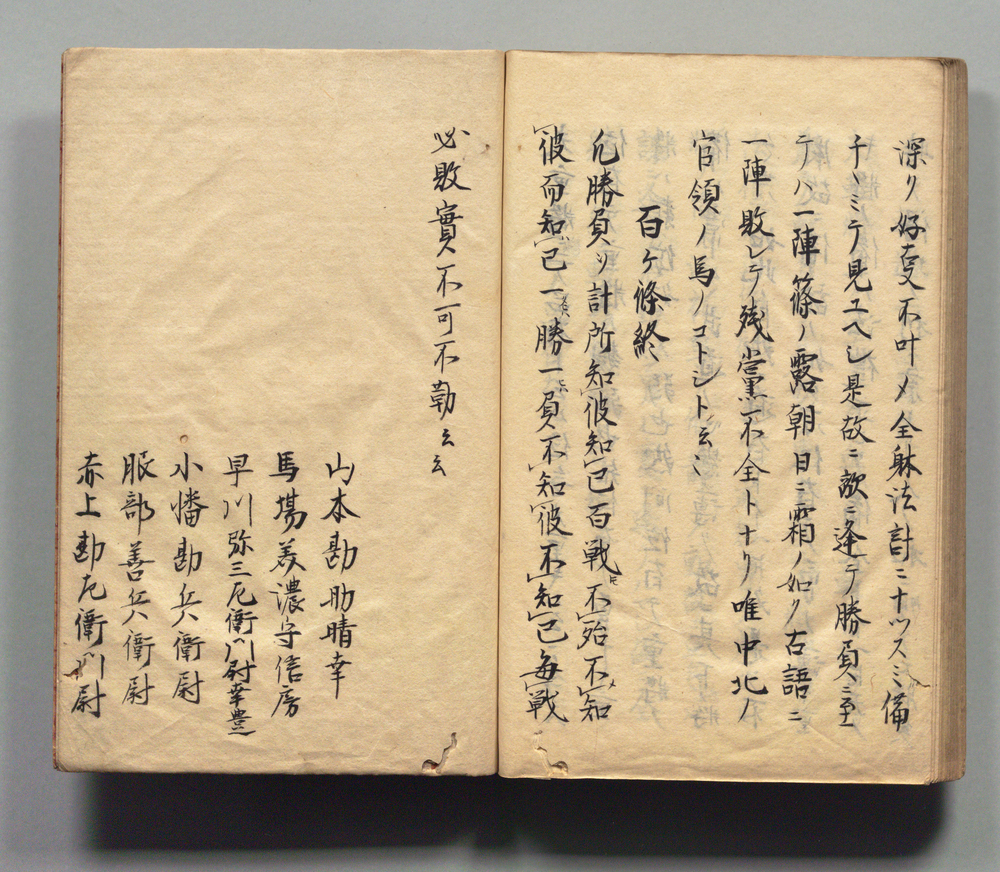 深ク好変不叶〆全躰法討ニナツスミ備
千〻ミテ見ユヘシ是故ニ敵ニ逢テ勝負ニ至
テハ一陣篠ノ露朝日ニ霜ノ如ク古語ニ
一陣敗レテ残黨不全トナリ唯中北ノ
官領ノ馬ノコトシト云〻
百ヶ條終
凡勝負ノ計所知彼知己百戦不殆不知
彼而知己一勝一負不知彼不知己毎戦
必敗實不可不勤云云
山本勘助晴幸
馬場美濃守信房
早川弥三左衛門尉幸豊
小幡勘兵衛尉
服部善兵衛尉
赤上勘左衛門尉